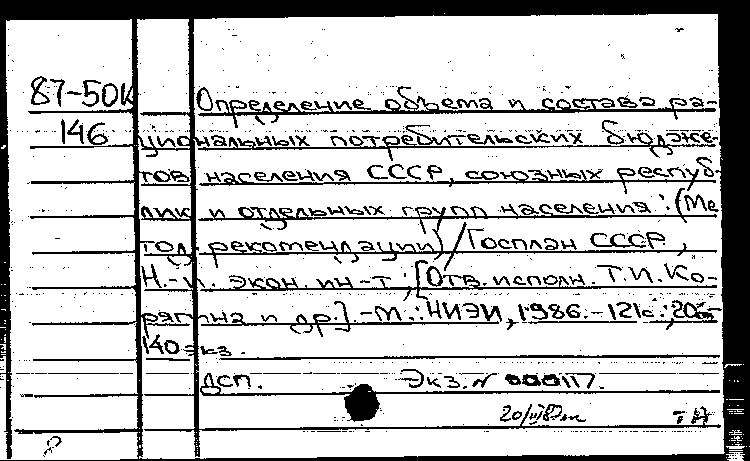 87-50к Определение объема и состава ра-
146 циональных потребительских бюдже-
тов населения СССР, союзных респуб-
лик и отдельных групп населения : (Ме
тод. рекомендации) / Госплан СССР,
Н.-и. экон. ин-т ; [Отв. исполн. Т.И. Ко-
рягина и др.]. -М. : НИЭИ, 1986. - 121с. ; 20см
140 экз.
ДСП. Экз. N 000117.